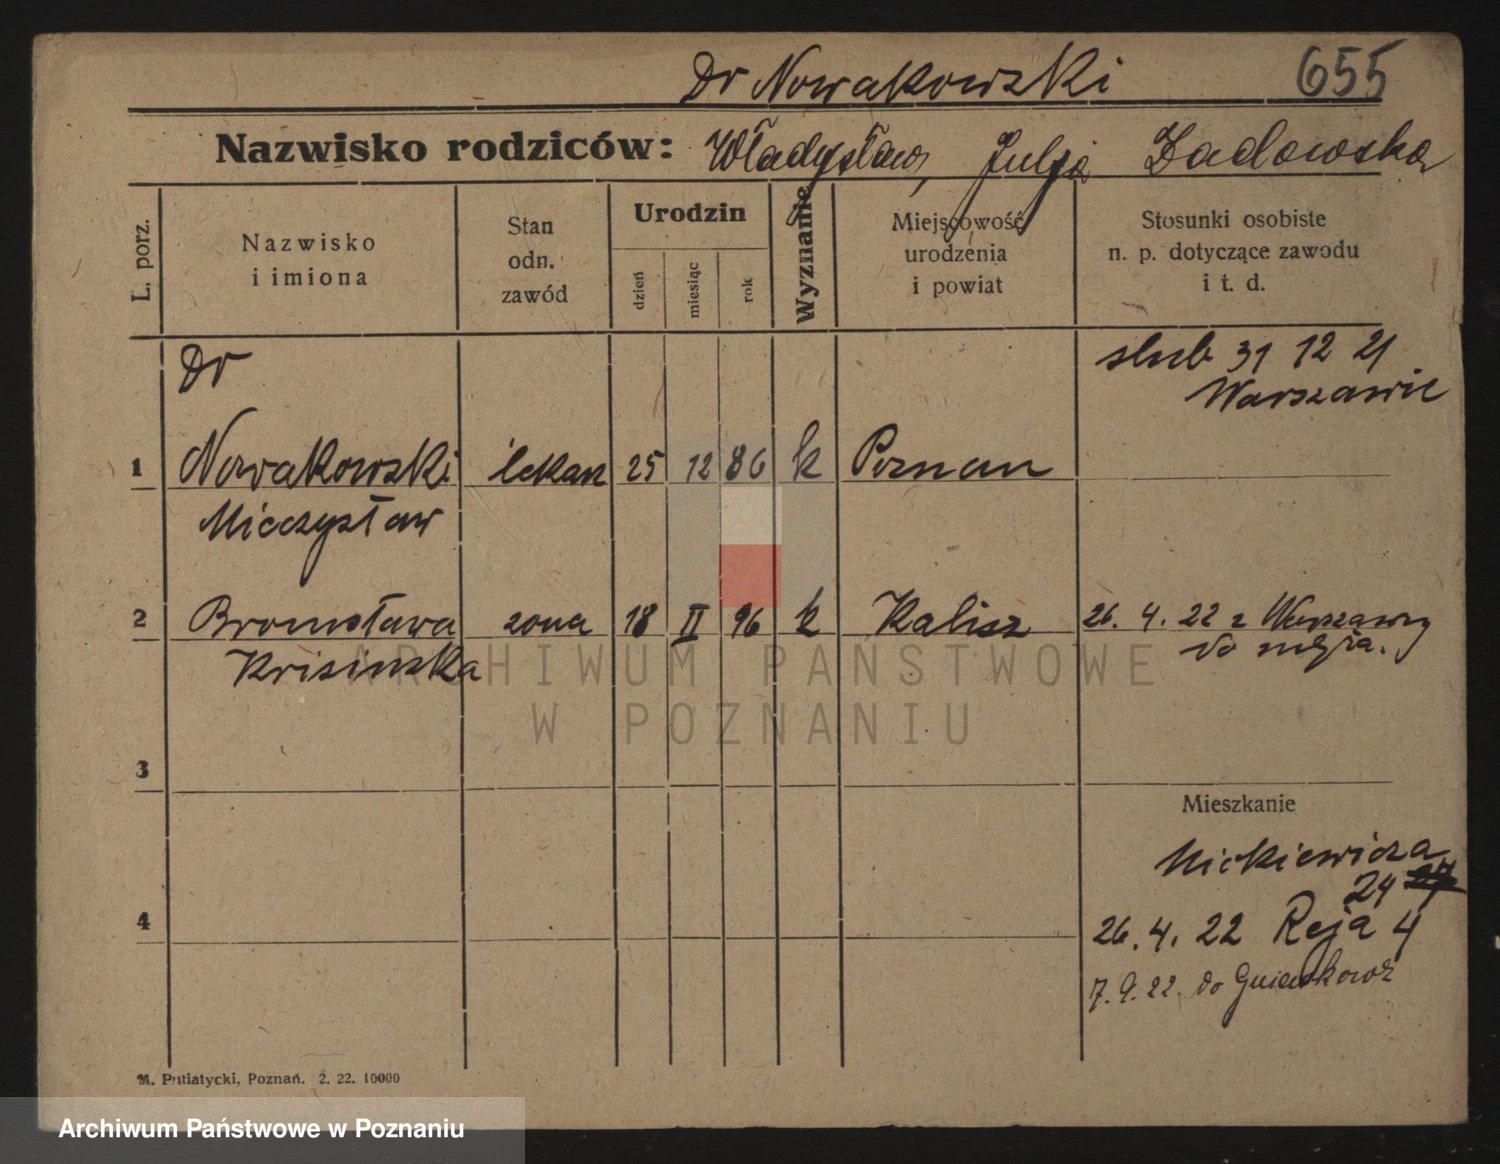 Dr Nowakowski 655
Nazwisko rodziców: Władysław, Julja Zadowska
L. porz.
Nazwisko
i imiona
Stan
odn.
zawód
Urodzin
dzień
miesiąc
rok
Wyznanie
Miejscowość
urodzenia
i powiat
Stosunki osobiste
n. p. dotyczące zawodu
i t. d.
Dr
slub 31 12 21
Warszawie
1 Nowakowski lekarz 25 12 86 k Poznan
Mieczysław
2 Bronisława zona 18 II 96 k Kalisz 26. 4. 22 z Warszawy
Krisinska do męża.
ARCHIWUM PAŃSTWOWE
W POZNANIU
3
Mieszkanie
Mickiewicza
24
4
26. 4. 22 Reja 4
7. 9. 22. do Gniewkowa
M. Putiatycki, Poznań. 2. 22. 10000
Archiwum Państwowe w Poznaniu